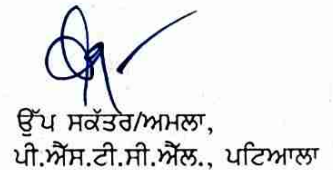 ਉੱਪ ਸਕੱਤਰ/ਅਮਲਾ,
ਪੀ.ਐੱਸ.ਟੀ.ਸੀ.ਐੱਲ., ਪਟਿਆਲਾ